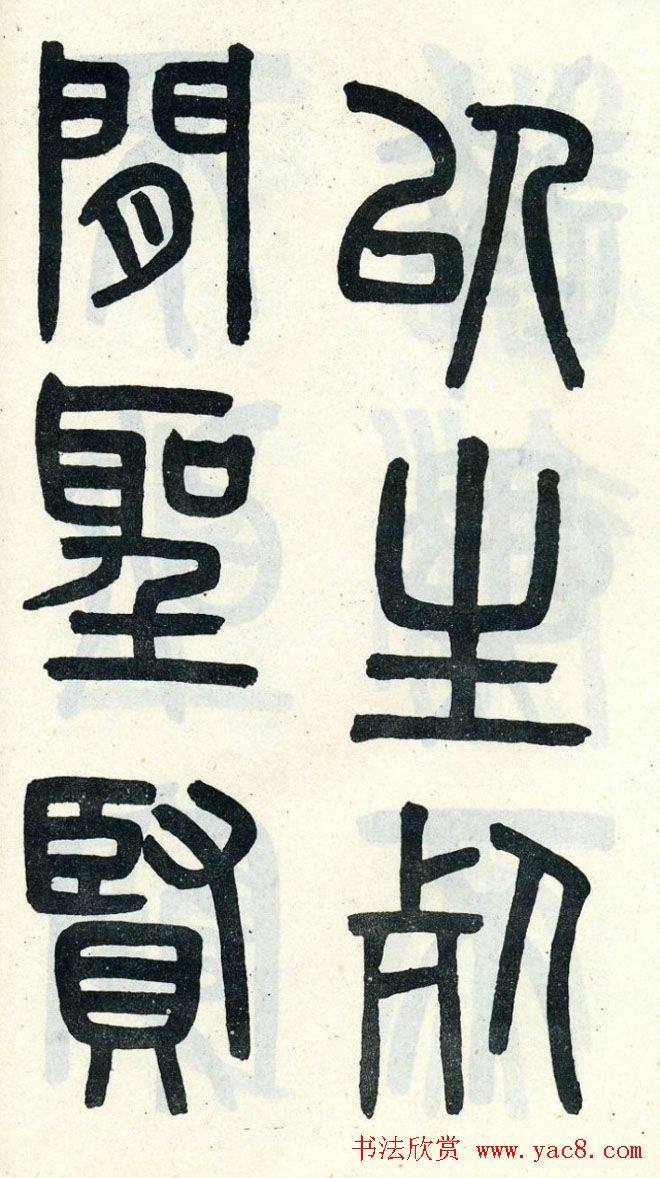 以生死
閒聖賢
书法欣赏 www.yac8.com